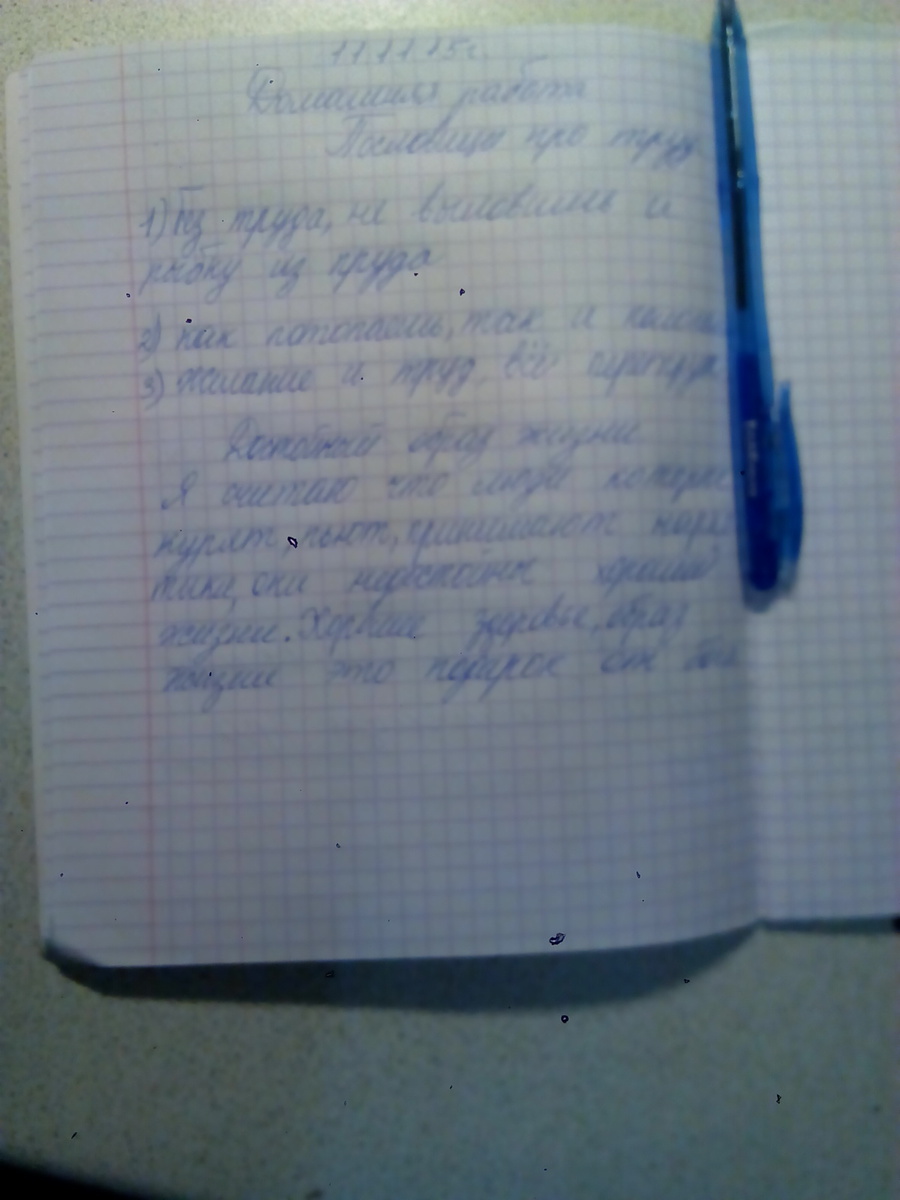 11.11.15г.
Домашняя работа
Пословицы про труд
1) Без труда, не выловишь и
рыбку из пруда
2) как потопаешь, так и
3) желание и труд всё
Достойный образ жизни
Я считаю что люди которые
курят, пьют, принимают нарко
тики, они недостойны хорошей
жизни. Хорошие здоровье, образ
жизни это подарок от бога